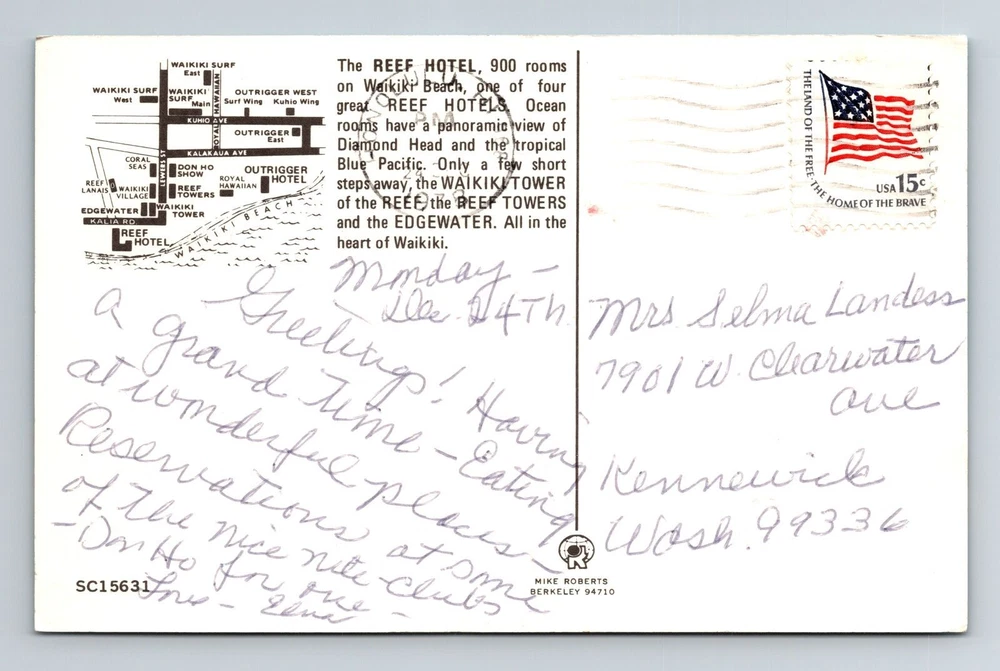 WAIKIKI SURF
East
WAIKIKI SURF
West
WAIKIKI
SURF
Main
OUTRIGGER WEST
Surf Wing Kuhio Wing
ROYAL HAWAIIAN
KUHIO AVE
OUTRIGGER
East
KALAKAUA AVE
LEWERS ST
CORAL
SEAS
DON HO
SHOW
REEF
LANAIS
WAIKIKI
VILLAGE
REEF
TOWERS
ROYAL
HAWAIIAN
OUTRIGGER
HOTEL
EDGEWATER
WAIKIKI
TOWER
KALIA RD
REEF
HOTEL
WAIKIKI BEACH
The REEF HOTEL, 900 rooms
on Waikiki Beach, one of four
great REEF HOTELS. Ocean
rooms have a panoramic view of
Diamond Head and the tropical
Blue Pacific. Only a few short
steps away, the WAIKIKI TOWER
of the REEF, the REEF TOWERS
and the EDGEWATER. All in the
heart of Waikiki.
PM
24
THE LAND OF THE FREE · THE HOME OF THE BRAVE
USA 15c
Monday –
Dec. 24TH
Greetings! Having
a grand time – Eating
at wonderful places –
Reservations at some
of the nice nite-clubs
– Don Ho for one –
Love –
Mrs Selma Landess
7901 W. Clearwater
ave
Kennewick
Wash. 99336
SC15631
MIKE ROBERTS
BERKELEY 94710